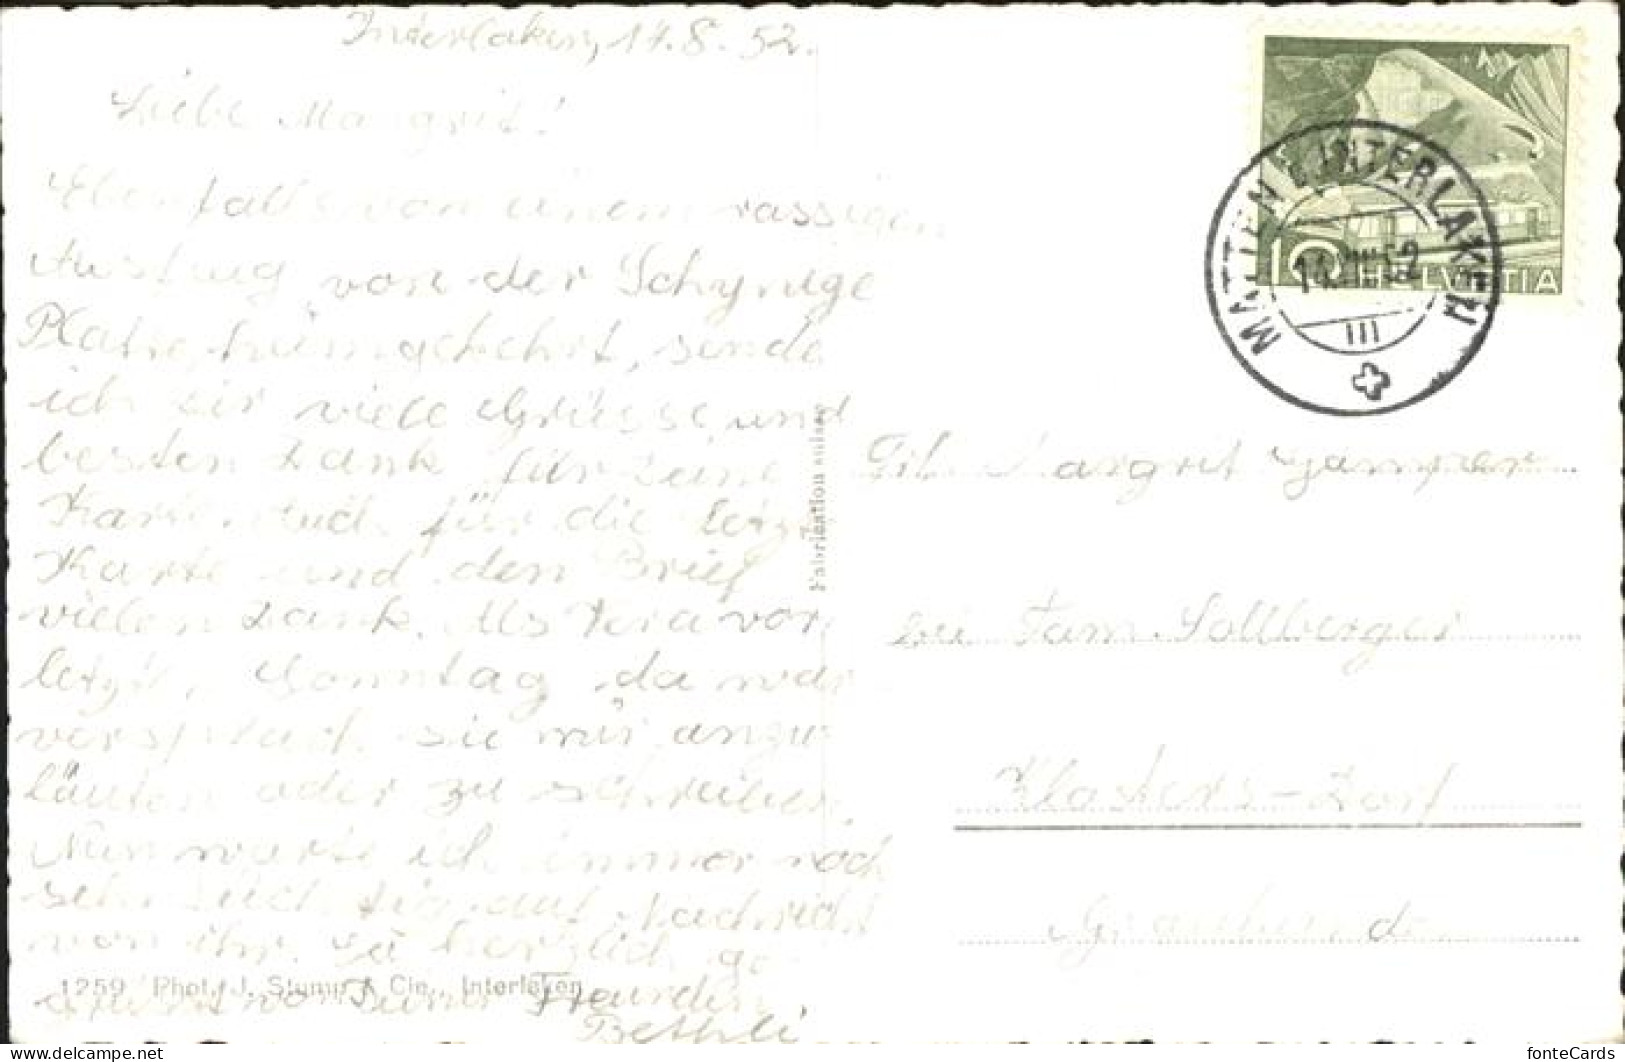 Interlaken, 14.8.52.
Liebe Margrit!
Ebenfalls von einem rassigen
Ausflug von der Schynige
Platte heimgekehrt, sende
ich dir viele Grüsse und
besten Dank für deine
Karte. Auch für die letzte
Karte und den Brief
vielen Dank. Als Vera vor
letzt. Sonntag da war
versprach sie mir anzu-
läuten oder zu schreiben.
Nun warte ich immer noch
sehnsüchtig auf Nachricht
von ihr. Sei herzlich ge-
grüsst von deiner Freundin
Bethli
1259 Phot. J. Stump & Cie., Interlaken
Fabrication suisse
MATTEN B. INTERLAKEN
14.VIII.52
III
10 HELVETIA
Frl. Margrit
bei Fam. Sollberger
Klosters-Dorf
Graubünden
fonteCards